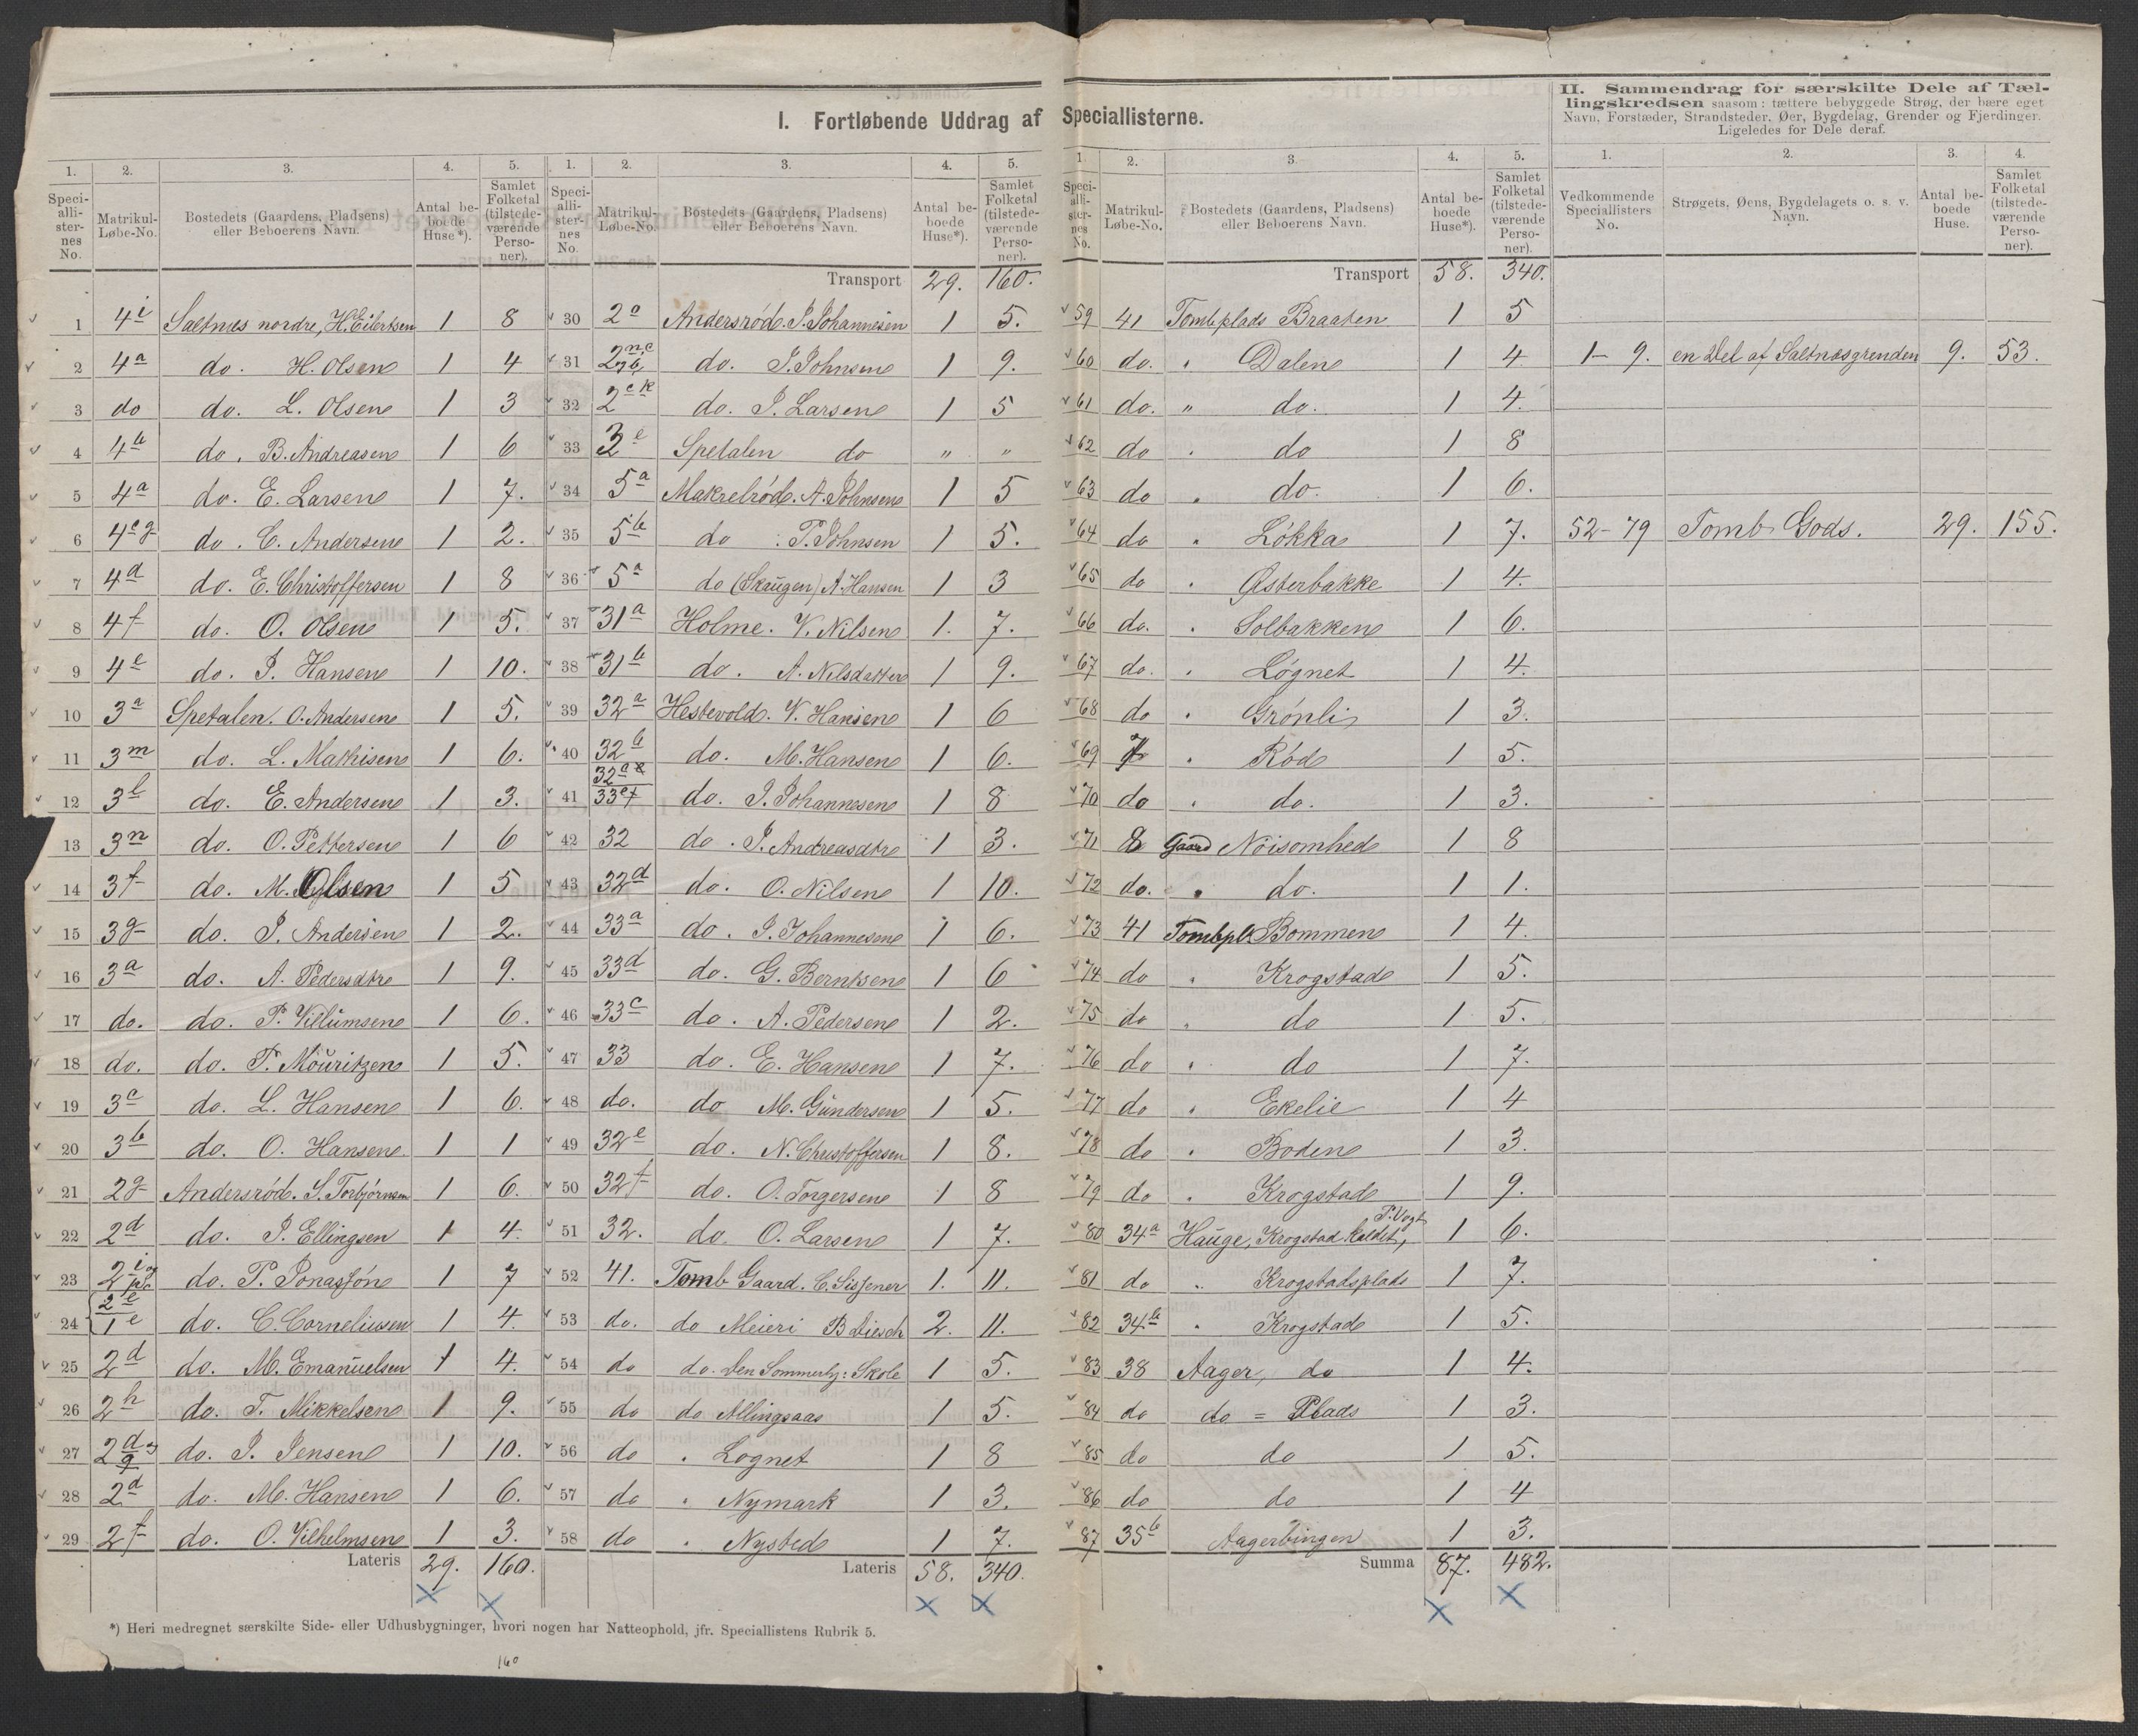 I. Fortløbende Uddrag af Speciallisterne.
II. Sammendrag for særskilte Dele af Tællingskredsen saasom: tættere bebyggede Strøg, der bære eget
Navn, Forstæder, Strandsteder, Øer, Bygdelag, Grender og Fjerdinger.
Ligeledes for Dele deraf.
1. 2. 3. 4. 5.
Speciallisternes No. Matrikul-Løbe-No. Bostedets (Gaardens, Pladsens) eller Beboerens Navn. Antal beboede Huse*). Samlet Folketal (tilstedeværende Personer).
1 4i Saltnes nordre, H. Eilertsen 1 8
2 4a do. H. Olsen 1 4
3 do do. L. Olsen 1 3
4 4b do. B. Andreasen 1 6
5 4a do. E. Larsen 1 7.
6 4c g do. C. Andersen 1 2.
7 4d do. E. Christoffersen 1 8
8 4f do. O. Olsen 1 5.
9 4e do. J. Hansen 1 10.
10 3a Spetalen. O. Andersen 1 5.
11 3m do. L. Mathisen 1 6.
12 3l do. E. Andersen 1 3.
13 3n do. O. Pettersen 1 6
14 3f do. M. Olsen 1 5
15 3g do. J. Andersen 1 2.
16 3a do. A. Pedersdtr 1 9.
17 do. do. P. Villumsen 1 6.
18 do. do. T. Mouritzen 1 5.
19 3c do. L. Hansen 1 6.
20 3b do. O. Hansen 1 1
21 2g Andersrød. S. Torbjørnsen 1 6.
22 2d do. J. Ellingsen 1 4.
23 2i do. P. Jonassøn 1 7
24 2e 1e do. C. Corneliussen 1 4.
25 2d do. M. Emanuelsen 1 4.
26 2h do. T. Mikkelsen 1 9.
27 2d do. J. Jensen 1 10.
28 2d do. M. Hansen 1 6.
29 2f do. O. Vilhelmsen 1 3.
Lateris 29. 160.
*) Heri medregnet særskilte Side- eller Udhusbygninger, hvori nogen har Natteophold, jfr. Speciallistens Rubrik 5.
160
1. 2. 3. 4. 5.
Speciallisternes No. Matrikul-Løbe-No. Bostedets (Gaardens, Pladsens) eller Beboerens Navn. Antal beboede Huse*). Samlet Folketal (tilstedeværende Personer).
Transport 29. 160.
30 2o Andersrød. J. Johannesen 1 5.
31 do. J. Johnsen 1 9.
32 2c k do. J. Larsen 1 5
33 3e Spetalen do " "
34 5a Makrelrød. A. Johnsen 1 5
35 5b do P. Johnsen 1 5.
36 5a do (Skaugen) A. Hansen 1 3
37 31a Holme. V. Nilsen 1. 7.
38 31b do. A. Nilsdatter 1 9.
39 32a Hestevold. V. Hansen 1 6
40 32b do. M. Hansen 1 6.
41 do. J. Johannesen 1 8
42 32 do. J. Andreasdtr 1 3.
43 32d do. O. Nilsen 1 10.
44 33a do. J. Johannesen 1 6.
45 33d do. G. Berntsen 1 6
46 33c do. A. Pedersen 1 2.
47 33 do. E. Hansen 1 7.
48 do. do M. Gundersen 1 5.
49 32e do. N. Christoffersen 1 8.
50 32f do. O. Torgersen 1 8
51 32. do. O. Larsen 1 7.
52 41. Tomb Gaard. C. Sissener 1. 11.
53 do. do Meieri B Diesch 2. 11.
54 do do. Den Sommerly: Skole 1 5.
55 do do Allingsaas 1 5.
56 do " Løgnet 1 8
57 do " Nymark 1 3.
58 do " Nysted 1 7.
Lateris 58. 340.
1. 2. 3. 4. 5.
Speciallisternes No. Matrikul-Løbe-No. Bostedets (Gaardens, Pladsens) eller Beboerens Navn. Antal beboede Huse*). Samlet Folketal (tilstedeværende Personer).
Transport 58. 340.
59 41 Tombplads Braaten 1 5
60 do. " Dalen 1 4
61 do. " do. 1 4.
62 do " do 1 8
63 do " do. 1 6.
64 do " Løkka 1 7.
65 do " Østerbakke 1 4.
66 do. " Solbakken 1 6.
67 do. " Løgnet 1 4.
68 do " Grønli 1 3.
69 7 " Rød 1 5.
70 do " do. 1 3.
71 8 Gaard Nøisomhed 1 8
72 do. " do. 1 1.
73 41 Tombpl. Bommen 1 4.
74 do " Krogstad 1 5.
75 do " do 1 5.
76 do " do 1 7.
77 do " Ekelie 1 4
78 do " Boden 1 3.
79 do " Krogstad 1 9.
80 34a Hauge, Krogstad kaldet, P. Vogt 1 6.
81 do " Krogstadsplads 1 7.
82 34b " Krogstad 1 5.
83 38 Aager, do 1 4.
84 do do = Plads 1 3.
85 do do 1 5.
86 do do 1 4
87 35b Aagerbingen 1 3.
Summa 87. 482.
1. 2. 3. 4.
Vedkommende Speciallisters No. Strøgets, Øens, Bygdelagets o. s. v. Navn. Antal beboede Huse. Samlet Folketal (tilstedeværende Personer).
1-9. en Del af Saltnæsgrenden 9. 53.
52-79 Tomb Gods. 29. 155.